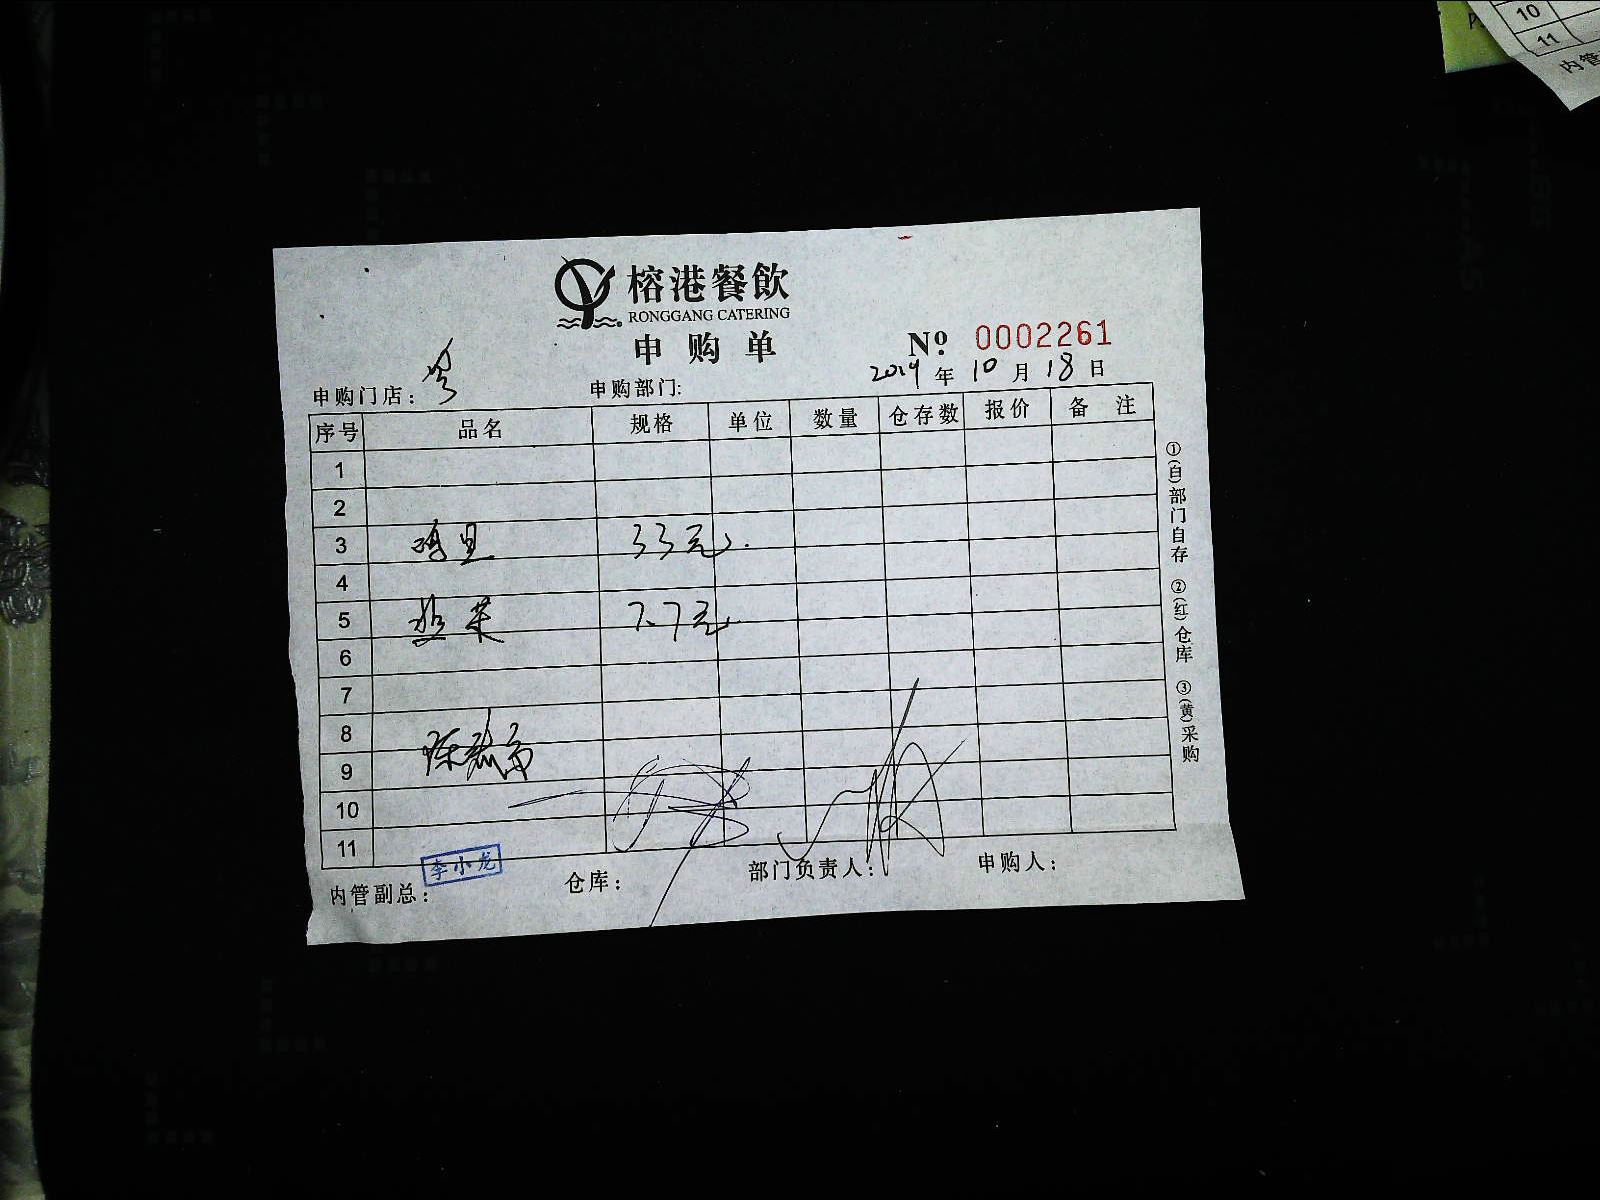 榕港餐飲
RONGGANG CATERING
申购单
№ 0002261
2019年10月18日
申购门店：
申购部门:
序号 品名 规格 单位 数量 仓存数 报价 备注
1
2
3 33元
4
5 韭菜 7.7元
6
7
8
9
10
11
李小龙
内管副总： 仓库： 部门负责人： 申购人：
①(白)部门自存 ②(红)仓库 ③(黄)采购
10
11
内管